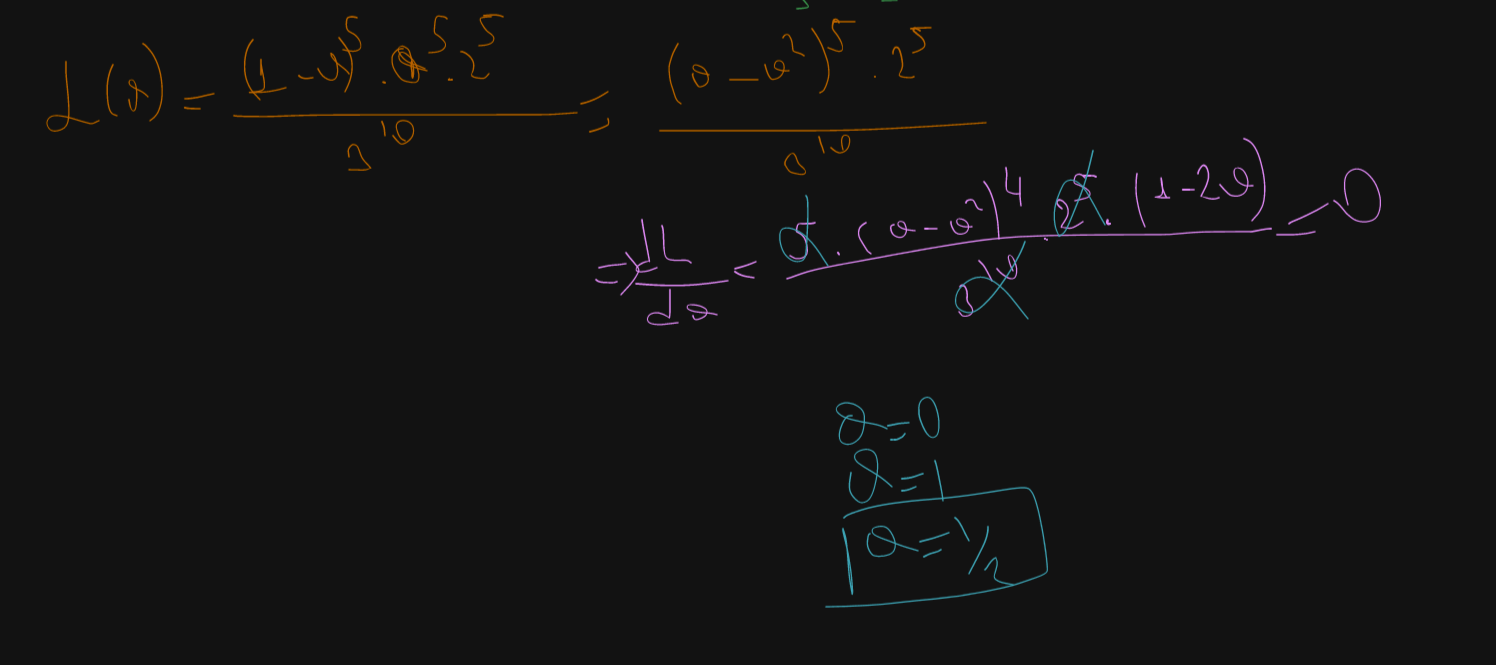 L(θ) = (1-θ)^5 . θ^5 . 2^5 / 3^10 = (θ - θ^2)^5 . 2^5 / 3^10
=> dL/dθ = 5 . (θ - θ^2)^4 . 2^5 . (1-2θ) / 3^10 = 0
θ = 0
θ = 1
θ = 1/2